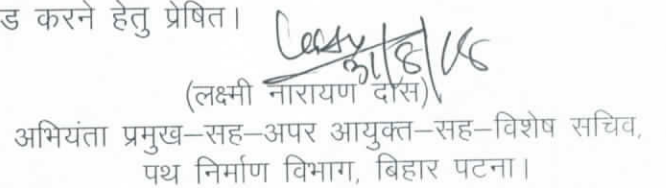 ड करने हेतु प्रेषित।
31/8/08
(लक्ष्मी नारायण दास)
अभियंता प्रमुख–सह–अपर आयुक्त–सह–विशेष सचिव,
पथ निर्माण विभाग, बिहार पटना।